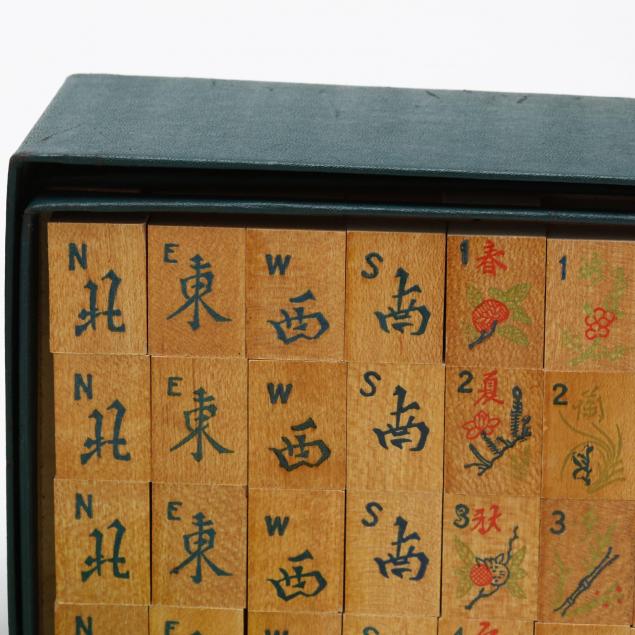 N 北 E 東 W 西 S 南 1 春 1
N 北 E 東 W 西 S 南 2 夏 2
N 北 E 東 W 西 S 南 3 秋 3
N E W S